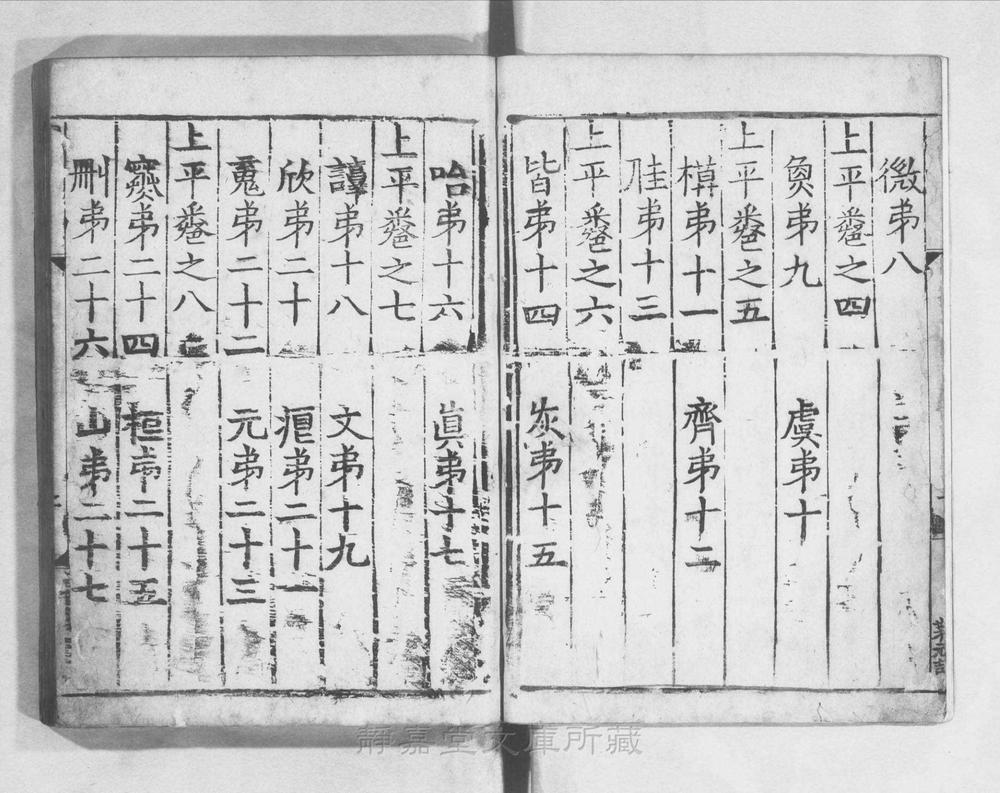 微弟八
上平卷之四
魚弟九 虞弟十
上平卷之五
模弟十一 齊弟十二
佳弟十三
上平卷之六
皆弟十四 灰弟十五
咍弟十六 眞弟十七
上平卷之七
諄弟十八 文弟十九
欣弟二十 痕弟二十一
䰟弟二十二 元弟二十三
上平卷之八
寒弟二十四 桓弟二十五
刪弟二十六 山弟二十七
靜嘉堂文庫所藏